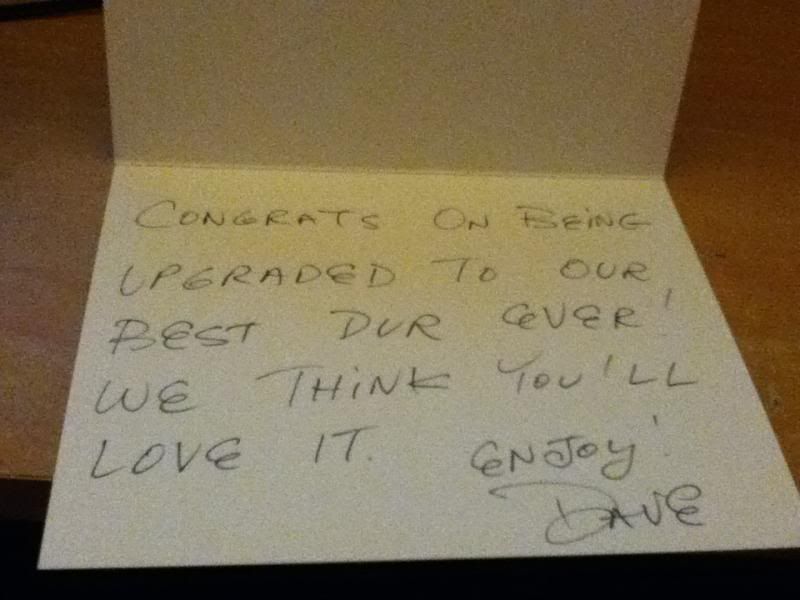 CONGRATS ON BEING
UPGRADED TO OUR
BEST DVR EVER!
WE THINK YOU'LL
LOVE IT. ENJOY!
DAVE